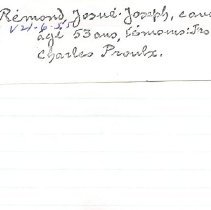 Rémond, Josué-Joseph, cava
âgé 53 ans, témoins: Fro
Charles Proulx.